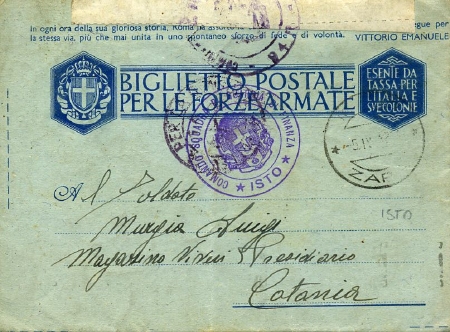 In ogni ora della sua gloriosa storia, Roma ha
la stessa via, più che mai unita in uno spontaneo sforzo di fede e di volontà. VITTORIO EMANUELE
BIGLIETTO POSTALE
PER LE FORZE ARMATE
ESENTE DA
TASSA PER
L'ITALIA E
SVE COLONIE
ISTO
ZAR
ISTO
Al Soldato
Murgia Luigi
Magazzino Viveri Presidiario
Catania